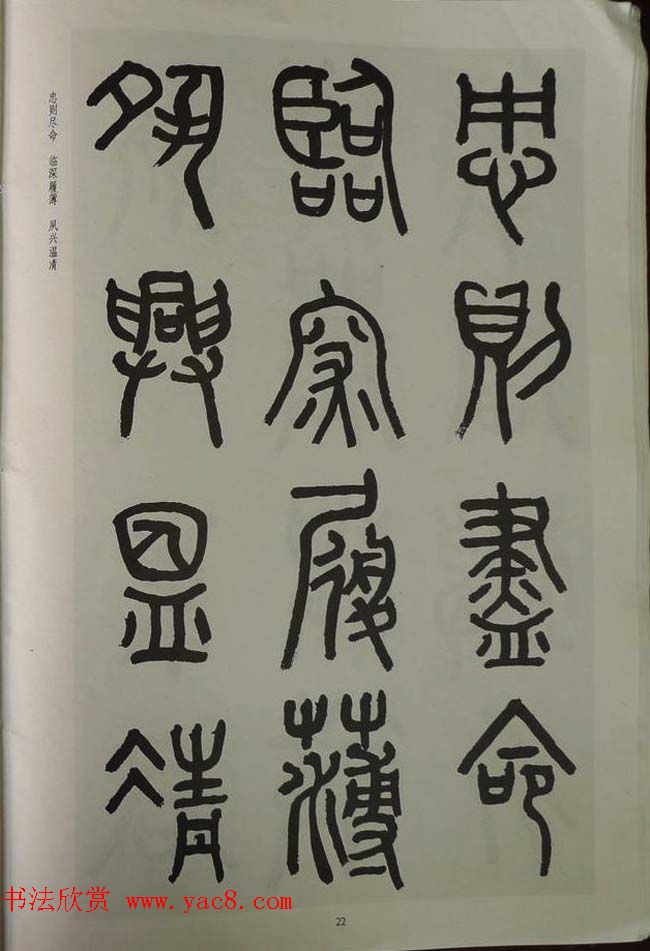 忠則盡命
臨深履薄
夙興温凊
忠则尽命 临深履薄 夙兴温清
书法欣赏 www.yac8.com
22